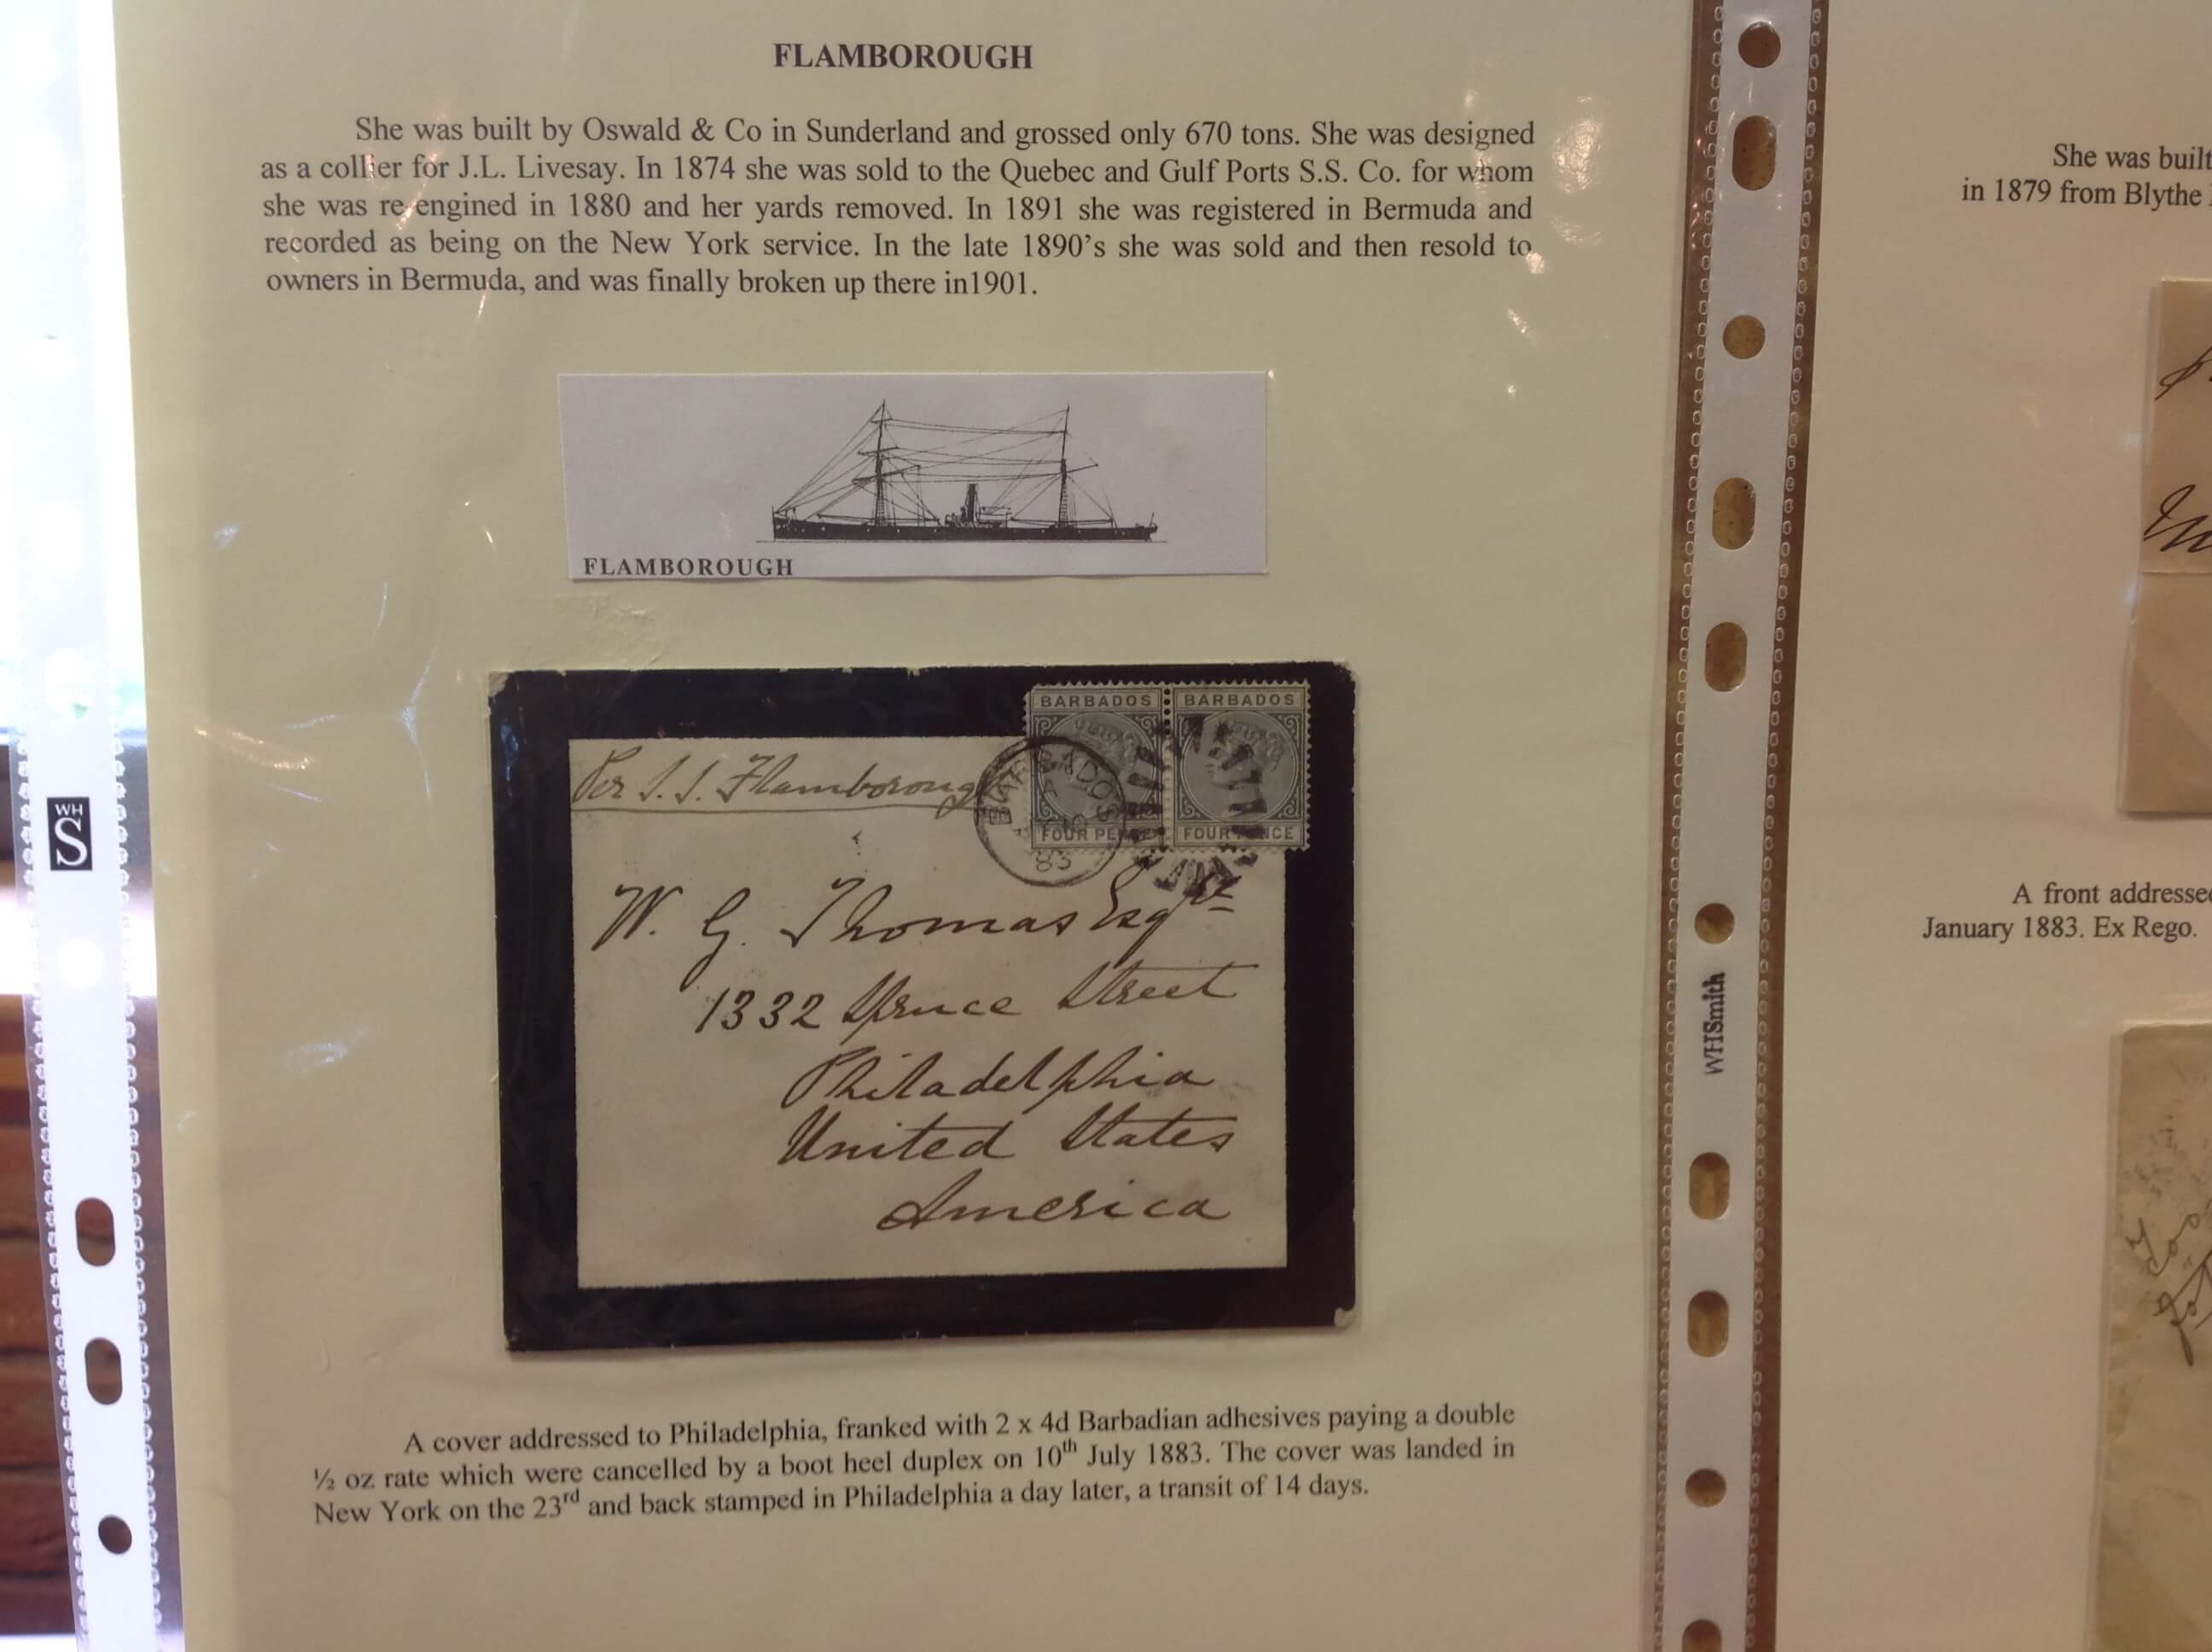 FLAMBOROUGH
She was built by Oswald & Co in Sunderland and grossed only 670 tons. She was designed
as a collier for J.L. Livesay. In 1874 she was sold to the Quebec and Gulf Ports S.S. Co. for whom
she was re-engined in 1880 and her yards removed. In 1891 she was registered in Bermuda and
recorded as being on the New York service. In the late 1890's she was sold and then resold to
owners in Bermuda, and was finally broken up there in1901.
FLAMBOROUGH
BARBADOS BARBADOS
FOUR PENCE FOUR PENCE
BARBADOS
83
Per S.S. Flamboroug
W. G. Thomas Esqre
1332 Spruce Street
Philadelphia
United States
America
A cover addressed to Philadelphia, franked with 2 x 4d Barbadian adhesives paying a double
½ oz rate which were cancelled by a boot heel duplex on 10th July 1883. The cover was landed in
New York on the 23rd and back stamped in Philadelphia a day later, a transit of 14 days.
WH
S
WHSmith
She was built
in 1879 from Blythe
A front addresse
January 1883. Ex Rego.